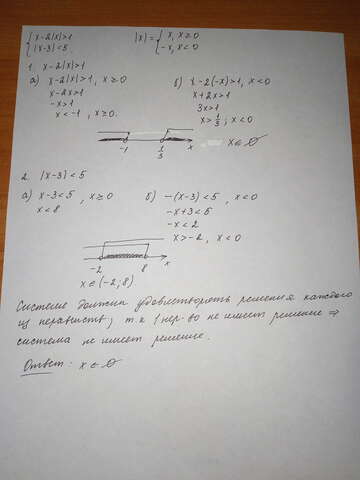 { x-2|x|>1 |x| = { x, x≥0
{ |x-3|<5. { -x, x<0
1. x-2|x|>1
а) x-2|x|>1, x≥0 б) x-2(-x)>1, x<0
x-2x>1 x+2x>1
-x>1 3x>1
x<-1, x≥0. x>1/3; x<0
-1 1/3 x x∈∅
2. |x-3|<5
а) x-3<5, x≥0 б) -(x-3)<5, x<0
x<8 -x+3<5
-x<2
x>-2, x<0
-2 8 x
x∈(-2;8)
Система должна удовлетворять решения каждого
из неравенств; т.к 1 нер-во не имеет решение ⇒
система не имеет решение.
Ответ: x∈∅